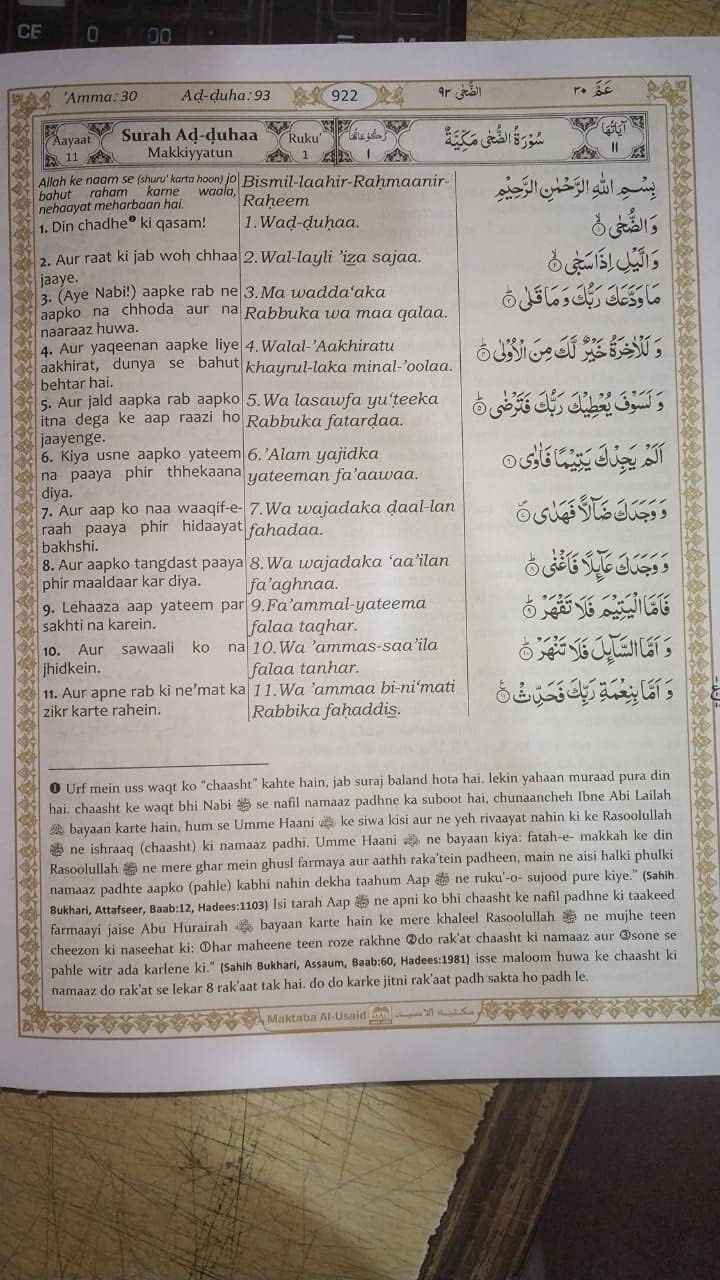 CE 0 00
'Amma: 30 Aḍ-ḍuha: 93 922 الضُّحٰى ٩٣ عَمَّ ٣٠
Aayaat 11
Surah Aḍ-ḍuhaa
Makkiyyatun
Ruku' 1
رُكُوْعَاتُهَا ١
سُوْرَةُ الضُّحٰى مَكِّيَّةٌ
اٰيَاتُهَا ١١
Allah ke naam se (shuru' karta hoon) jo
bahut raham karne waala,
nehaayat meharbaan hai.
Bismil-laahir-Raḥmaanir-
Raḥeem
بِسْمِ اللهِ الرَّحْمٰنِ الرَّحِيْمِ
1. Din chadhe❶ ki qasam!
1.Waḍ-ḍuḥaa.
وَالضُّحٰى ۙ١
2. Aur raat ki jab woh chhaa
jaaye.
2.Wal-layli 'iza sajaa.
وَالَّيْلِ اِذَا سَجٰى ۙ٢
3. (Aye Nabi!) aapke rab ne
aapko na chhoda aur na
naaraaz huwa.
3.Ma wadda‘aka
Rabbuka wa maa qalaa.
مَا وَدَّعَكَ رَبُّكَ وَمَا قَلٰى ؕ٣
4. Aur yaqeenan aapke liye
aakhirat, dunya se bahut
behtar hai.
4.Walal-'Aakhiratu
khayrul-laka minal-'oolaa.
وَلَلْاٰخِرَةُ خَيْرٌ لَّكَ مِنَ الْاُوْلٰى ؕ٤
5. Aur jald aapka rab aapko
itna dega ke aap raazi ho
jaayenge.
5.Wa lasawfa yu‘ṭeeka
Rabbuka fatarḍaa.
وَلَسَوْفَ يُعْطِيْكَ رَبُّكَ فَتَرْضٰى ؕ٥
6. Kiya usne aapko yateem
na paaya phir thhekaana
diya.
6.'Alam yajidka
yateeman fa'aawaa.
اَلَمْ يَجِدْكَ يَتِيْمًا فَاٰوٰى ٦
7. Aur aap ko naa waaqif-e-
raah paaya phir hidaayat
bakhshi.
7.Wa wajadaka ḍaal-lan
fahadaa.
وَوَجَدَكَ ضَآلًّا فَهَدٰى ٧
8. Aur aapko tangdast paaya
phir maaldaar kar diya.
8.Wa wajadaka ‘aa'ilan
fa'aghnaa.
وَوَجَدَكَ عَآئِلًا فَاَغْنٰى ؕ٨
9. Lehaaza aap yateem par
sakhti na karein.
9.Fa'ammal-yateema
falaa taqhar.
فَاَمَّا الْيَتِيْمَ فَلَا تَقْهَرْ ؕ٩
10. Aur sawaali ko na
jhidkein.
10.Wa 'ammas-saa'ila
falaa tanhar.
وَاَمَّا السَّآئِلَ فَلَا تَنْهَرْ ؕ١٠
11. Aur apne rab ki ne'mat ka
zikr karte rahein.
11.Wa 'ammaa bi-ni‘mati
Rabbika faḥaddis.
وَاَمَّا بِنِعْمَةِ رَبِّكَ فَحَدِّثْ ١١
❶ Urf mein uss waqt ko “chaasht” kahte hain, jab suraj baland hota hai. lekin yahaan muraad pura din
hai. chaasht ke waqt bhi Nabi ﷺ se nafil namaaz padhne ka suboot hai, chunaancheh Ibne Abi Lailah
bayaan karte hain, hum se Umme Haani ke siwa kisi aur ne yeh rivaayat nahin ki ke Rasoolullah
ﷺ ne ishraaq (chaasht) ki namaaz padhi. Umme Haani ne bayaan kiya: fatah-e- makkah ke din
Rasoolullah ﷺ ne mere ghar mein ghusl farmaya aur aathh raka'tein padheen, main ne aisi halki phulki
namaaz padhte aapko (pahle) kabhi nahin dekha taahum Aap ﷺ ne ruku'-o- sujood pure kiye.” (Sahih
Bukhari, Attafseer, Baab:12, Hadees:1103) Isi tarah Aap ﷺ ne apni ko bhi chaasht ke nafil padhne ki taakeed
farmaayi jaise Abu Hurairah bayaan karte hain ke mere khaleel Rasoolullah ﷺ ne mujhe teen
cheezon ki naseehat ki: ①har maheene teen roze rakhne ②do rak'at chaasht ki namaaz aur ③sone se
pahle witr ada karlene ki.” (Sahih Bukhari, Assaum, Baab:60, Hadees:1981) isse maloom huwa ke chaasht ki
namaaz do rak'at se lekar 8 rak'aat tak hai. do do karke jitni rak'aat padh sakta ho padh le.
Maktaba Al-Usaid مكتبه الاسيد